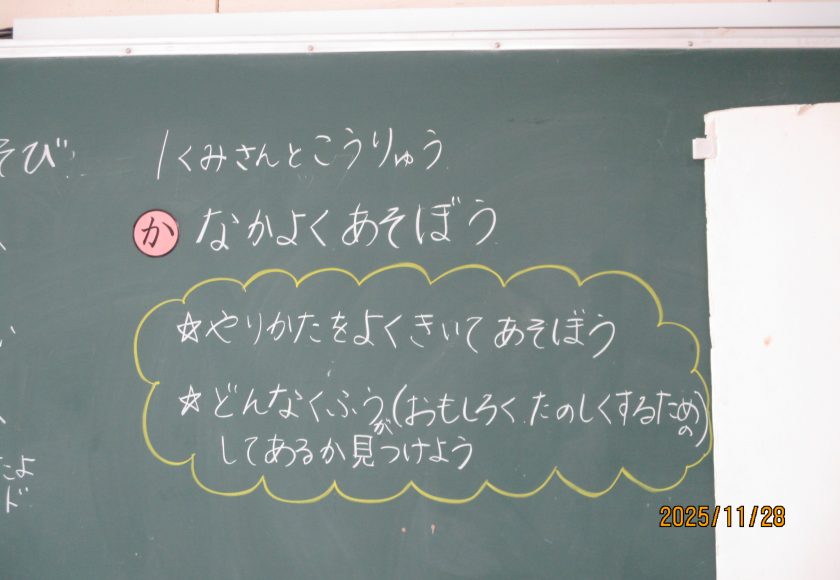 そび
1くみさんとこうりゅう
か なかよくあそぼう
☆やりかたをよくきいてあそぼう
☆どんなくふうが(おもしろく、たのしくするための)
してあるか見つけよう
こよ
ド
2025/11/28